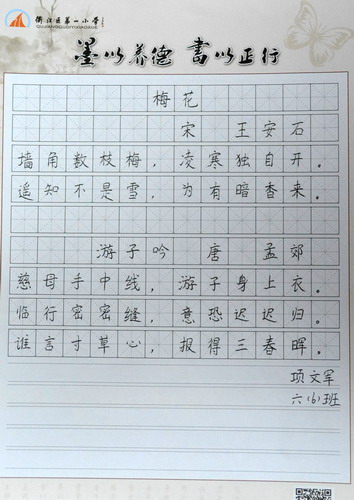 衢江区第一小学
墨以养德 書以正行
梅花
宋 王安石
墙角数枝梅，凌寒独自开。
遥知不是雪，为有暗香来。
游子吟 唐 孟郊
慈母手中线，游子身上衣。
临行密密缝，意恐迟迟归。
谁言寸草心，报得三春晖。
项文军
六(6)班